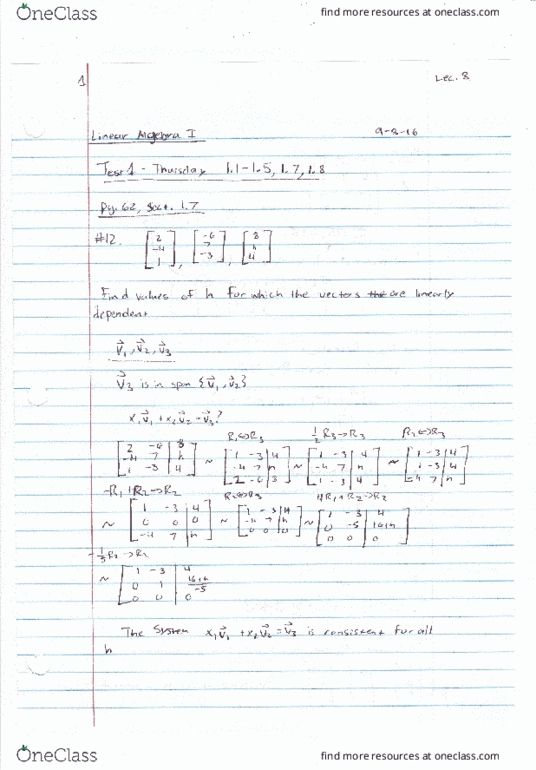 OneClass find more resources at oneclass.com
1 Lec. 8
Linear Algebra I 9-8-16
Test 1 - Thursday 1.1-1.5, 1.7, 1.8
pg. 62, Sect. 1.7
#12. [2 -4 1], [-6 7 -3], [8 h 4]
Find values of h for which the vectors are linearly
dependent
v₁, v₂, v₃
v₃ is in span {v₁, v₂}
x₁v₁ + x₂v₂ = v₃?
R₁⇔R₃ ½R₃→R₃ R₂⇔R₃
[2 -6 | 8 ~ [1 -3 | 4 ~ [1 -3 | 4 ~ [1 -3 | 4
-4 7 | h -4 7 | h -4 7 | h 1 -3 | 4
1 -3 | 4] 2 -6 | 8] 1 -3 | 4] -4 7 | h]
-R₁+R₂→R₂ R₂⇔R₃ 4R₁+R₂→R₂
~ [1 -3 | 4 ~ [1 -3 | 4 ~ [1 -3 | 4
0 0 | 0 -4 7 | h 0 -5 | 16+h
-4 7 | h] 0 0 | 0] 0 0 | 0]
-⅕R₂→R₂
~ [1 -3 | 4
0 1 | 16+h/-5
0 0 | 0]
The System x₁v₁ + x₂v₂ = v₃ is consistent for all
h
OneClass find more resources at oneclass.com